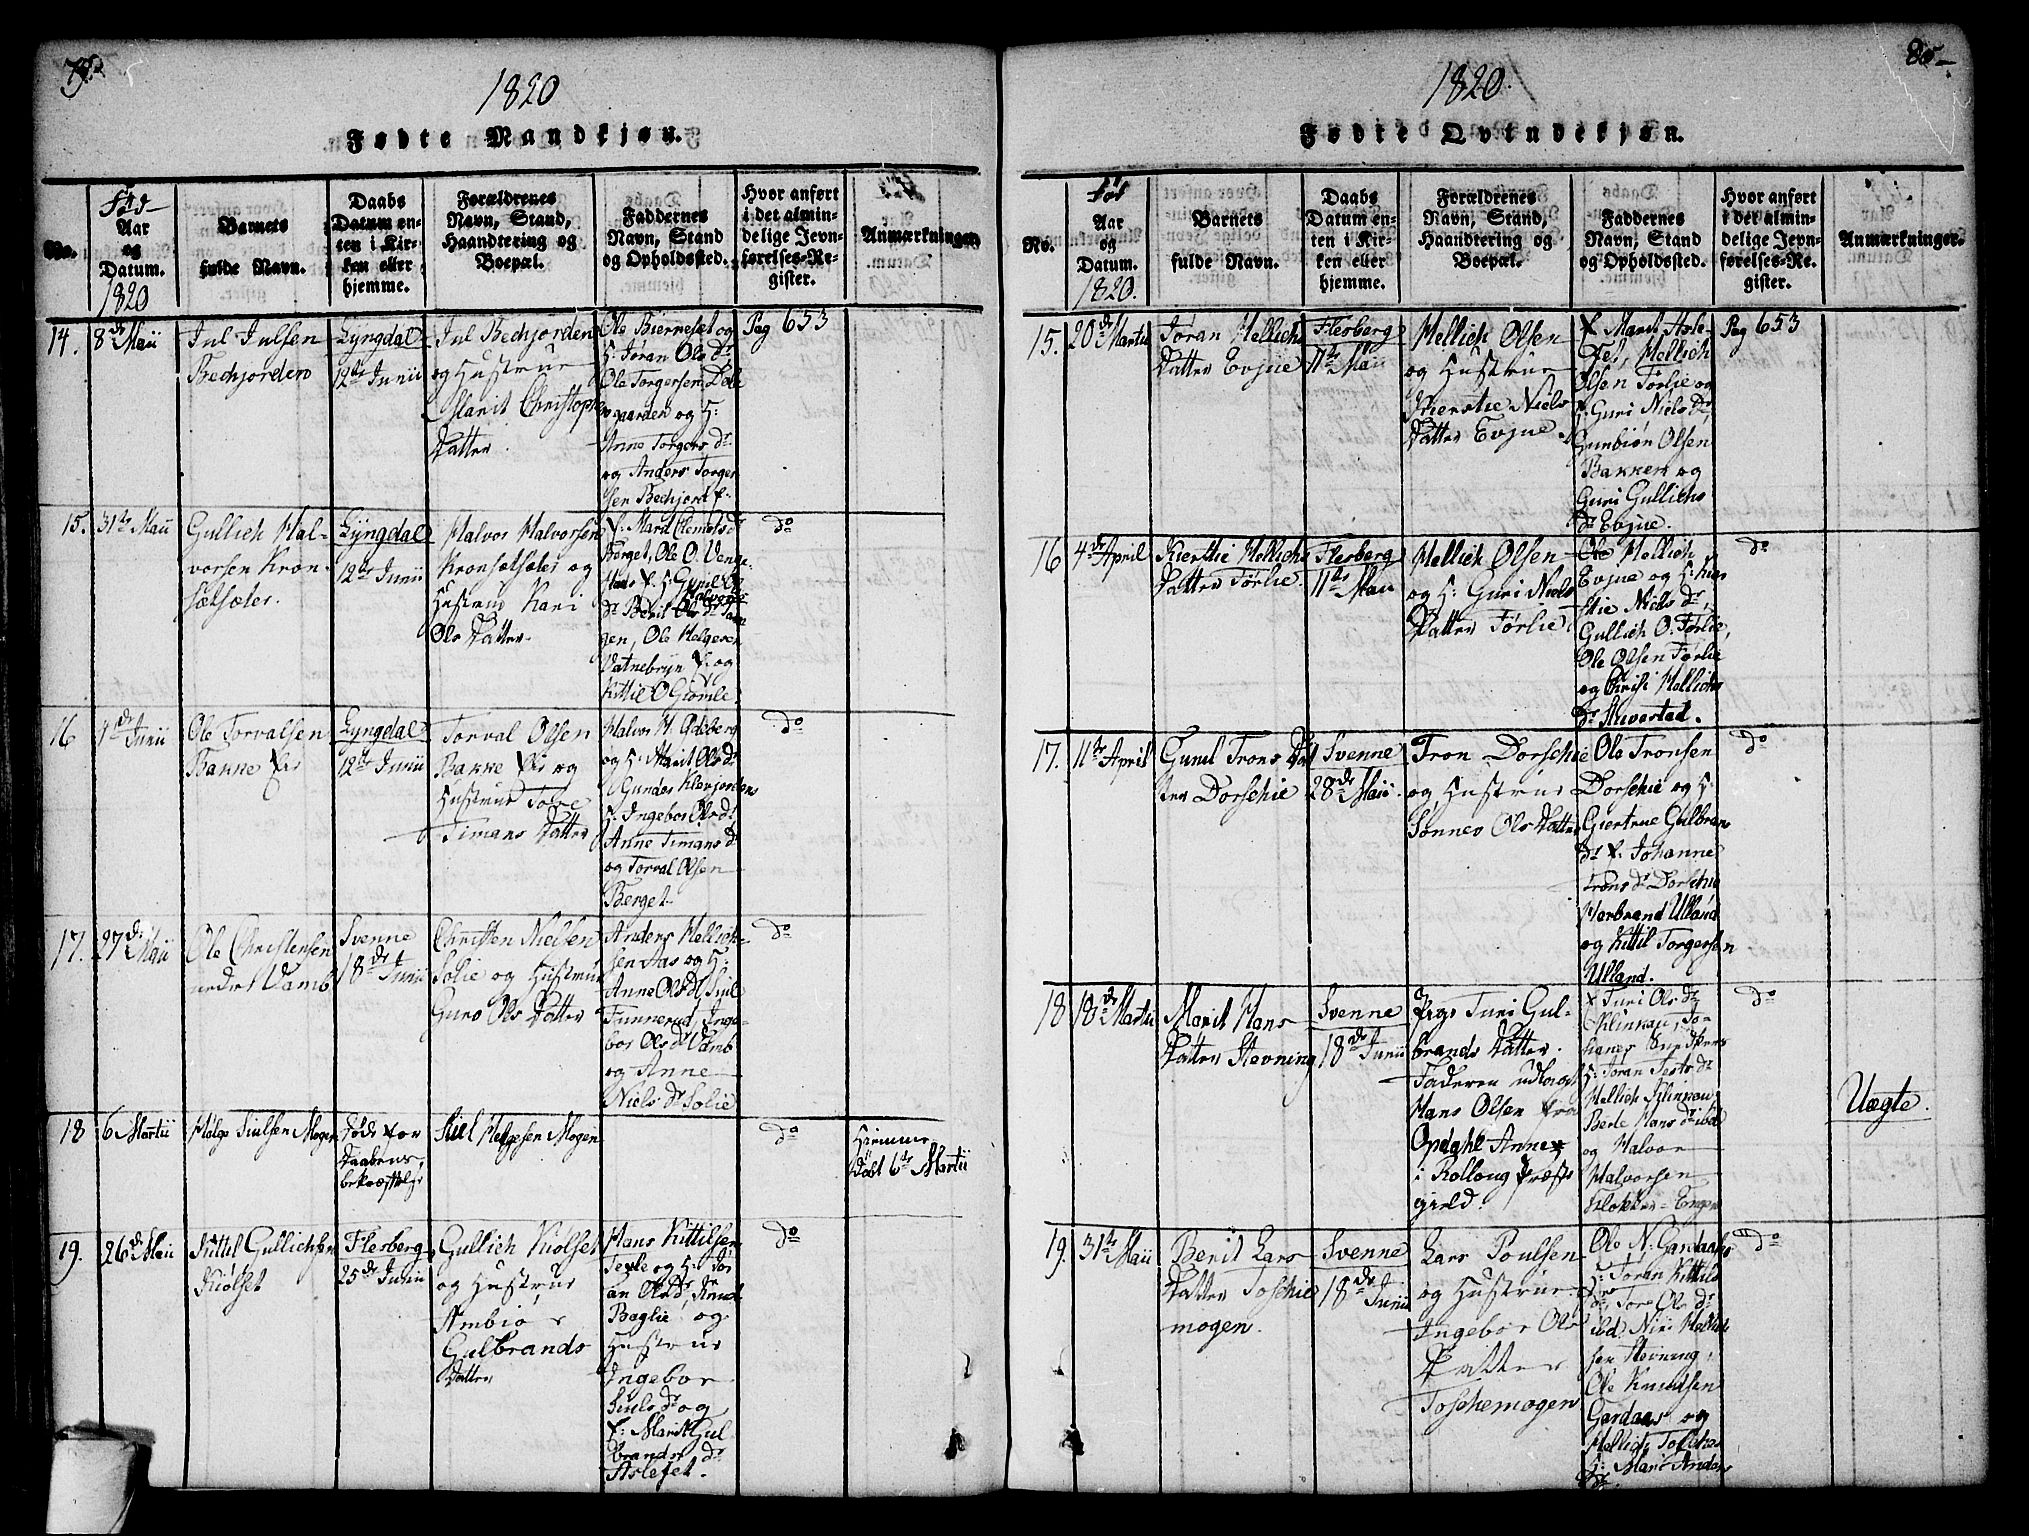 1820
Fødte Mandkjøn.
No.
Fød-
Aar
og
Datum.
1820
Barnets
fulde Navn.
Daabs
Datum en-
ten i Kir-
ken eller
hjemme.
Forældrenes
Navn, Stand,
Haandtering og
Boepæl.
Faddernes
Navn, Stand
og Opholdssted.
Hvor anført
i det almin-
delige Jevn-
førelses-Re-
gister.
Anmærkninger
14.
8de Maii
Jul Julsen
Bechjorden
Lyngdal
12te Junii
Jul Bechjorden
og Hustrue
Marit Christophe
Datter
Ole Bierneset og
H: Jøran Ols Dr
Ole Torgersen
gaarden og H:
Anne Torgers dr
og Anders Torger
sen Bechjord
Pag 653
15.
31te Maii
Gullich Hal-
vorsen Kron-
sætsæter.
Lyngdal
12te Junii
Halvor Halvorsen
Kronsætsæter og
Hustrue Kari
Ols Datter.
Berget, Ole O.
dr Berit Ols dr
gen, Ole Helgesen
Vatnebryn og
Kittil O Giømle
do
16
1de Junii
Ole Torvalsen
Bakke
Lyngdal
12te Junii
Torval Olsen
Bakke og
Hustrue Tore
Timans Datter
Halvor H.
og H: Marit Ols dr
Gunder Klevjorden
H: Ingebor Ols dr
Anne Timans dr
og Torval Olsen
Berget
do
17.
27de Maii
Ole Christensen
nedre Vamb
Svenne
18de Junii
Christen Nielsen
Solie og Hustrue
Guro Ols Datter
Anders Hellich-
sen Aas og H:
Anne Ols dr
Funnerud, Inge-
bor Ols dr Vamb
og Anne
Niels dr Solie
do
18
6 Martii
Helge Siulsen Mogen
Død før
Daabens
bekræftelse
Siul Helgesen Mogen
do
Hiemme
Døbt 6te Martii
19.
26de Maii
Kittil Gullichsen
Kiølset
Flesberg
25de Junii
Gullich Kiølset
og Hustrue
Ambiør
Gulbrands
Datter
Hans Kittilsen
og H: Jør
an Ols dr, Knud
Baglie og
Hustrue
Ingebor
Siuls dr og
Marit Gul
brands dr
Aslefet.
do
1820.
Fødte Qvindekjøn.
No.
Fød
Aar
og
Datum.
1820.
Barnets
fulde Navn.
Daabs
Datum en-
ten i Kir-
ken eller
hjemme.
Forældrenes
Navn, Stand,
Haandtering og
Boepæl.
Faddernes
Navn, Stand
og Opholdssted.
Hvor anført
i det almin-
delige Jevn-
førelses-Re-
gister.
Anmærkninger.
15.
20de Martii
Jøran Hellichs
Datter Evjue
Flesberg
11te Maii
Hellich Olsen
og Hustrue
Kierstie Niels
Datter Evjue.
Hellich
Olsen Førlie og
H: Guri Niels dr,
Gunbiøn Olsen
Bakken og
Guri Gullichs
dr Evjue.
Pag 653
16
4de April
Kierstie Hellichs
Datter Førlie.
Flesberg
11te Maii
Hellich Olsen
og H: Guri Niels
Datter Førlie.
Hellich
Evjue og H: Kier
stie Niels dr,
Gullich O. Førlie,
Ole Olsen Førlie
og Hellichs
dr
do
17.
11te April
Gunil Trons Dat
ter Dorschie
Svenne
28de Maii
Tron Dorschie
og Hustrue
Sønnev Ols Datter
Ole Tronsen
Dorschie og H:
Giertrue Gulbrans
dr Johanne
Trons dr Dorschie
Herbrand Ulland
og Kittil Torgersen
Ulland.
do
18
18de Martii
Marit Hans
Datter Stevning
Svenne
18de Junii
Pige Turi Gul-
brands Datter.
Faderen udlagt
Hans Olsen fra
Opdahl Annex
i Rolloug Præste
gield.
Turi Ols dr
H: Jøran
Hellich
Berte Hans dr ibd
og Halvor
Halvorsen
Engen
do
Uægte.
19.
31te Maii
Berit Lars
Datter Toschie
mogen.
Svenne
18de Junii
Lars Poulsen
og Hustrue
Ingebor Ols
Datter
Toschemogen
Ole N: Gardaas
H: Jøran Kittils
dr, Tore Ols dr
ibd,
sen Stevning,
Ole Knudsen
Gardaas og
Hellich
H: Mari Anders
do